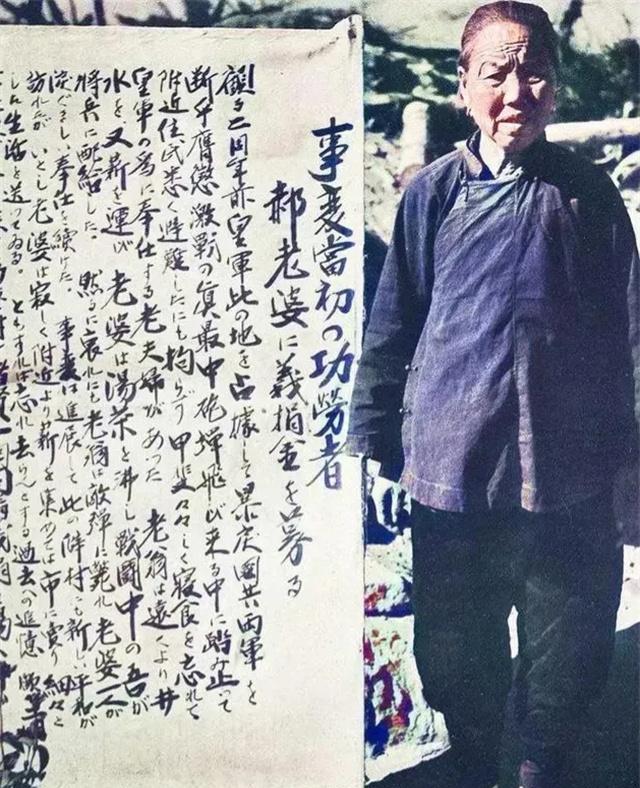 事変當初の功勞者
郝老婆に義捐金を募る
顧る二周年前皇軍此の地を占據して暴戻國共両軍を
断乎膺懲激戦の眞最中砲弾飛び来る中に踏み止って
附近住民悉く避難したにも拘らず甲斐々々しく寝食を忘れて
皇軍の為に奉仕する老夫婦があった 老翁は遠くより井
水を又薪を運び 老婆は湯茶を沸し戦闘中の吾が
将兵に配給した、然るに哀れにも老翁は敵弾に斃れ老婆一人が
涙ぐましい奉仕を続けた 事変は進展して此の隣村にも新しい平和が
訪れたが いとし老婆は寂しく附近より薪を集めては市に賣り細々と
した生活を送ってゐる。ともすれば忘れ去らんとする過去への追憶